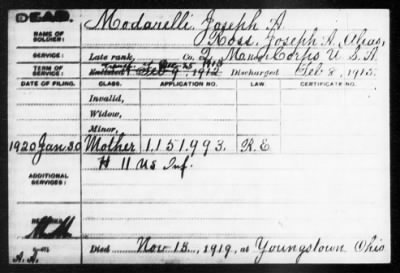 DEAD.
NAME OF SOLDIER:
Modarelli, Joseph A
Ross, Joseph A, Alias,
SERVICE:
Late rank, Co. Corps U S A
TERM OF SERVICE:
Enlisted Feb 9, 1912 Discharged Feb 8, 1915.
DATE OF FILING. CLASS. APPLICATION NO. LAW. CERTIFICATE NO.
Invalid,
Widow,
Minor,
1920 Jan 30 Mother 1.151.993. R.E
H 11 US Inf.
ADDITIONAL SERVICES:
Died Nov 13, 1919, at Youngstown Ohio